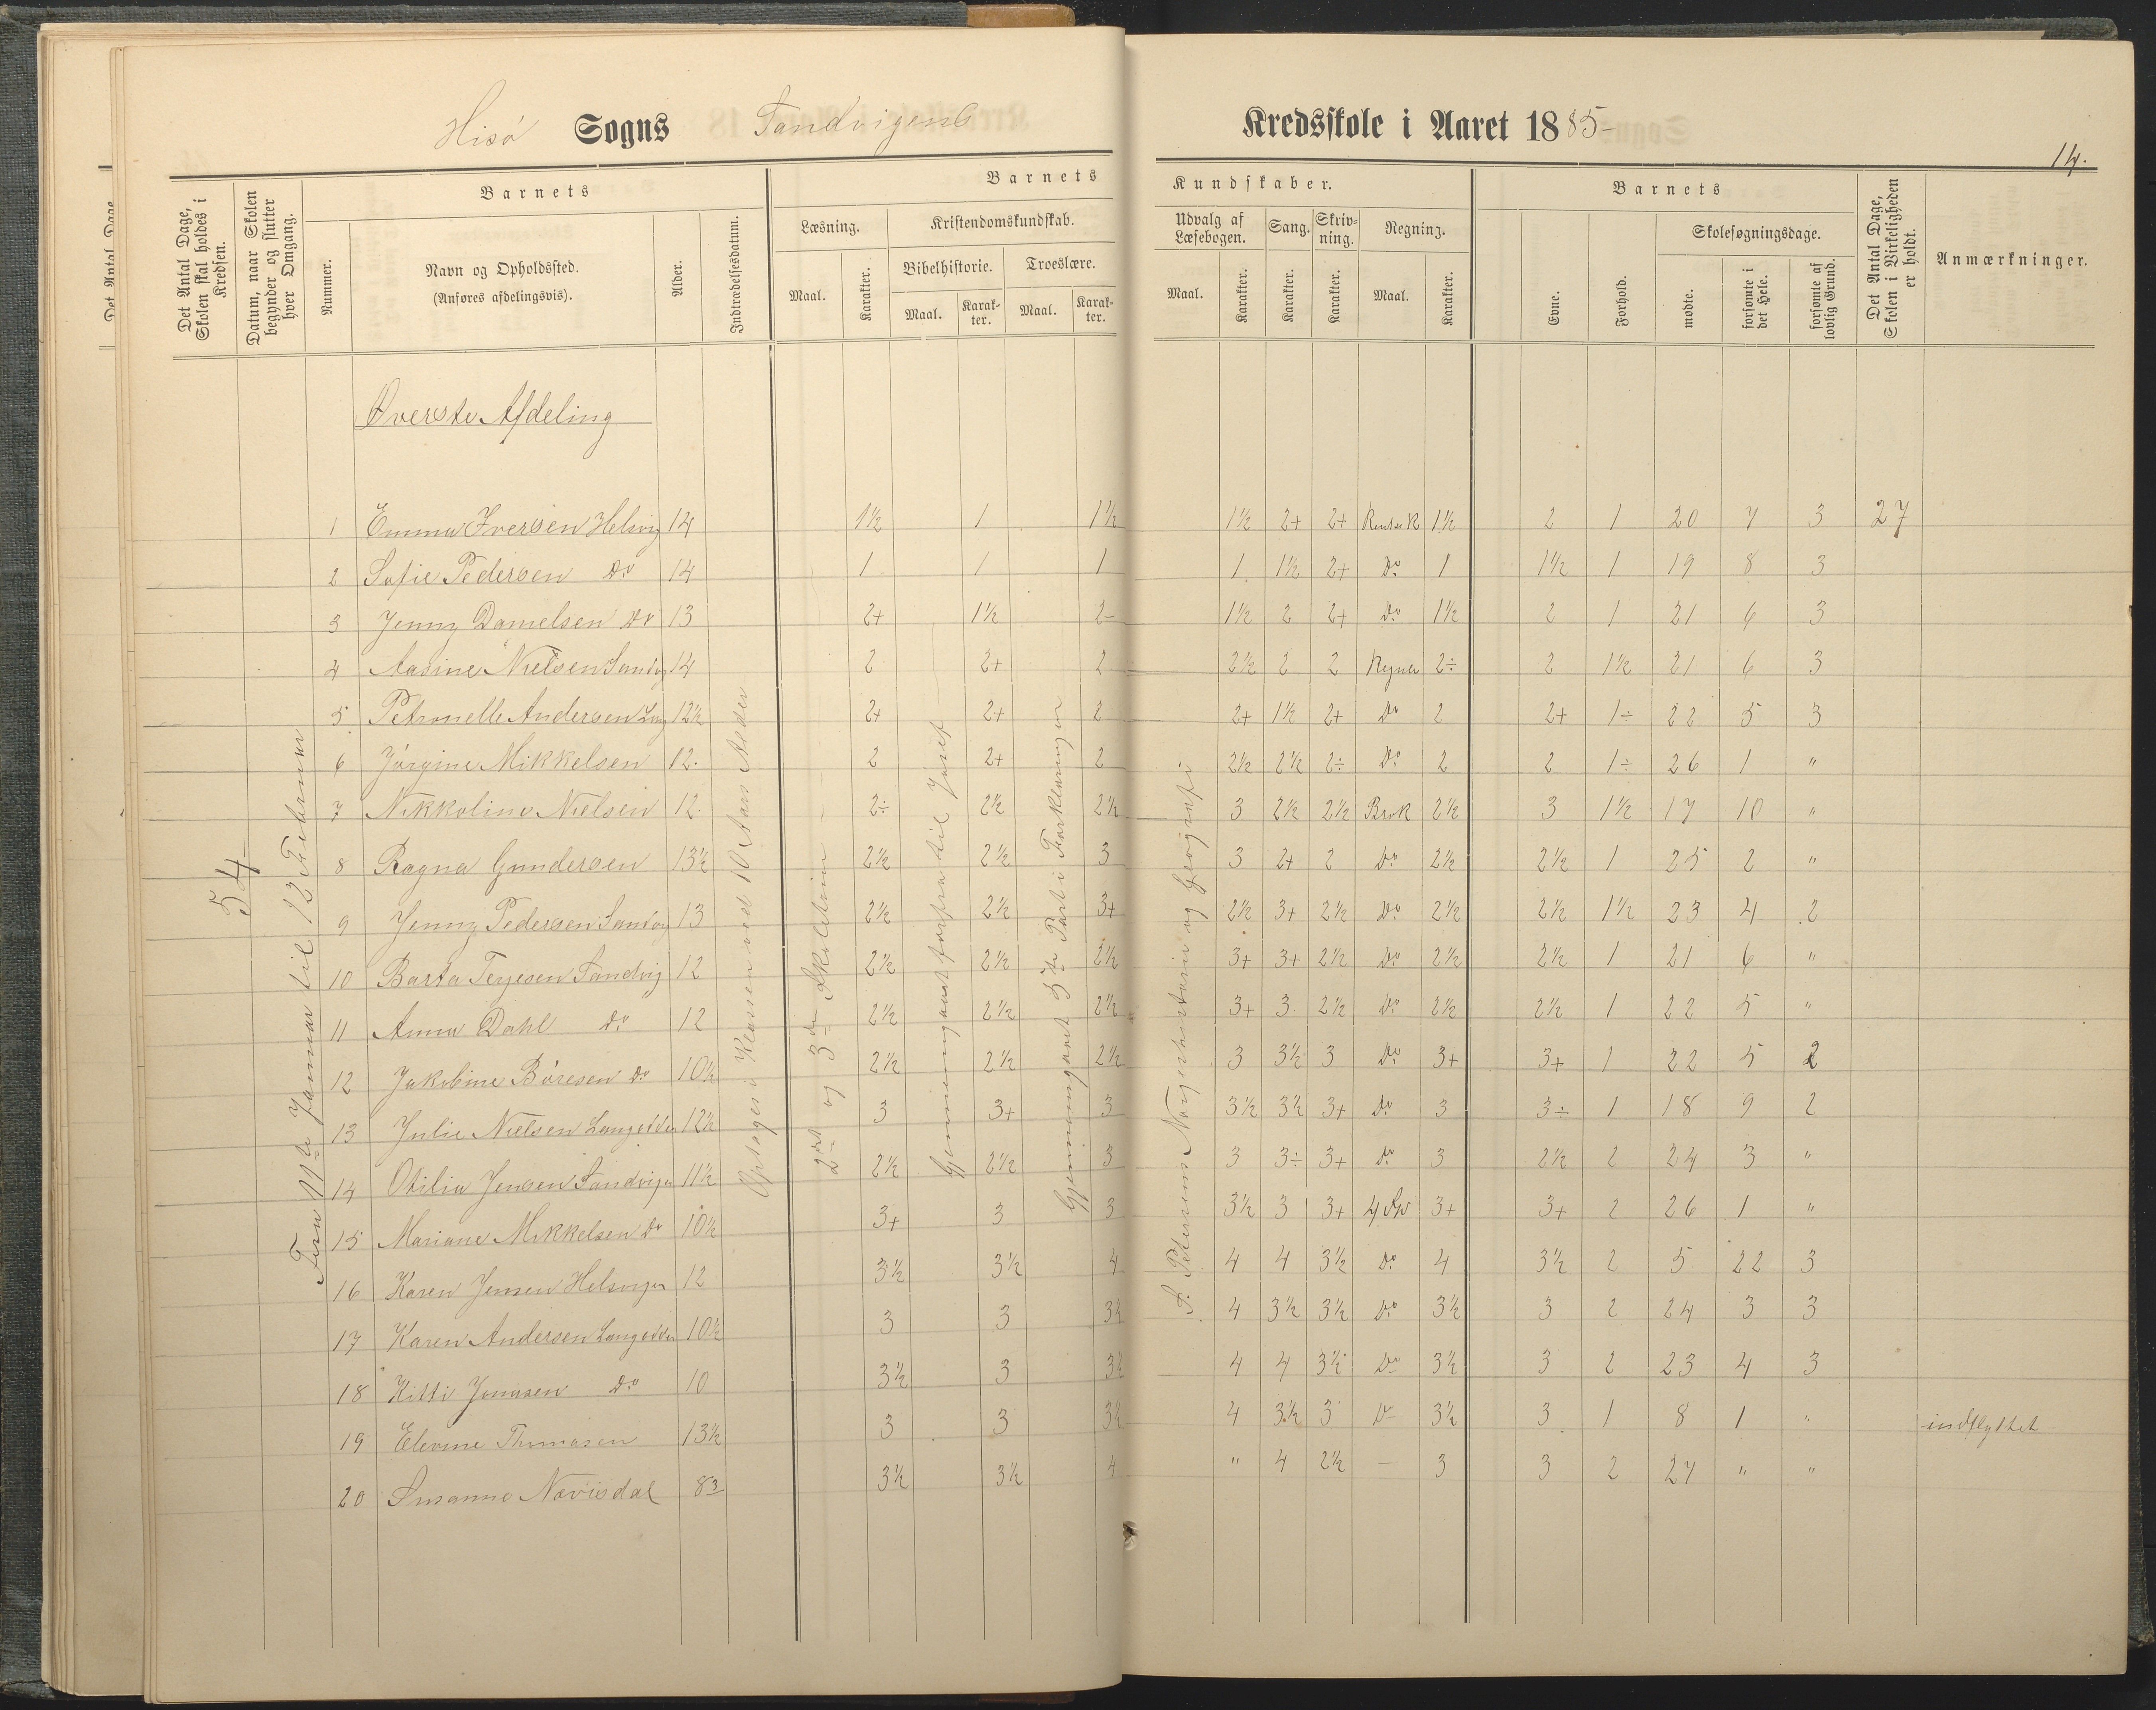 Hisö Sogns Sandvigens Kredsskole i Aaret 1885-
14.
Det Antal Dage, Skolen skal holdes i Kredsen.
Datum, naar Skolen begynder og slutter hver Omgang.
Barnets
Nummer.
Navn og Opholdssted.
(Anføres afdelingsvis).
Alder.
Indtrædelsesdatum.
Barnets Kundskaber.
Læsning.
Maal.
Karakter.
Kristendomskundskab.
Bibelhistorie.
Maal.
Karakter.
Troeslære.
Maal.
Karakter.
Udvalg af Læsebogen.
Maal.
Karakter.
Sang.
Karakter.
Skrivning.
Karakter.
Regning.
Maal.
Karakter.
Barnets
Evne.
Forhold.
Skolesøgningsdage.
mødte.
forsømte i det Hele.
forsømte af lovlig Grund.
Det Antal Dage, Skolen i Virkeligheden er holdt.
Anmærkninger.
Øverste Afdeling
54
Januar til 12 Februar
2det og 3die
Gjennemgaaet forfra til Josef
Gjennemgaaet 3die Part i Forklaringen
S. Petersens Norgeshistorie og Geografi
1 Emma Iversen Helsvig 14 1½ 1 1½ 1½ 2+ 2+ 1½ 2 1 20 7 3 27
2 Sofie Pedersen Do 14 1 1 1 1 1½ 2+ Do 1 1½ 1 19 8 3
3 Jenny Danielsen Do 13 2+ 1½ 2- 1½ 2 2+ Do 1½ 2 1 21 6 3
4 Aasine Nielsen Sandvig 14 2 2+ 2 2½ 2 2 2÷ 2 1½ 21 6 3
5 Petronelle Andersen 12½ 2+ 2+ 2 2+ 1½ 2+ Do 2 2+ 1÷ 22 5 3
6 Jörgine Mikkelsen 12. 2 2+ 2 2½ 2½ 2÷ Do 2 2 1÷ 26 1 "
7 Nikkoline Nielsen 12. 2÷ 2½ 2½ 3 2½ 2½ Brök 2½ 3 1½ 17 10 "
8 Ragna Gundersen 13½ 2½ 2½ 3 3 2+ 2 Do 2½ 2½ 1 25 2 "
9 Jenny Pedersen Sandvig 13 2½ 2½ 3+ 2½ 3+ 2½ Do 2½ 2½ 1½ 23 4 2
10 Barta Terjesen Sandvig 12 2½ 2½ 2½ 3+ 3+ 2½ Do 2½ 2½ 1 21 6 "
11 Anna Dahl Do 12 2½ 2½ 2½ 3+ 3 2½ Do 2½ 2½ 1 22 5 "
12 Jakobine Böresen Do 10½ 2½ 2½ 2½ 3 3½ 3 Do 3+ 3+ 1 22 5 2
13 Julie Nielsen 12½ 3 3+ 3 3½ 3½ 3+ Do 3 3÷ 1 18 9 2
14 Otilia Jensen Sandvigen 11½ 2½ 2½ 3 3 3÷ 3+ Do 3 2½ 2 24 3 "
15 Mariane Mikkelsen Do 10½ 3+ 3 3 3½ 3 3+ 3+ 3+ 2 26 1 "
16 Karen Jensen Helsvigen 12 3½ 3½ 4 4 4 3½ Do 4 3½ 2 5 22 3
17 Karen Andersen 10½ 3 3 3½ 4 3½ 3½ Do 3½ 3 2 24 3 3
18 Kitti Jonasen Do 10 3½ 3 3½ 4 4 3½ Do 3½ 3 2 23 4 3
19 Thomasen 13½ 3 3 3½ 4 3½ 3 D- 3½ 3 1 8 1 " indflyttet
20 Susanne Nævisdal 3½ 3½ 4 " 4 2½ - 3 3 2 27 " "